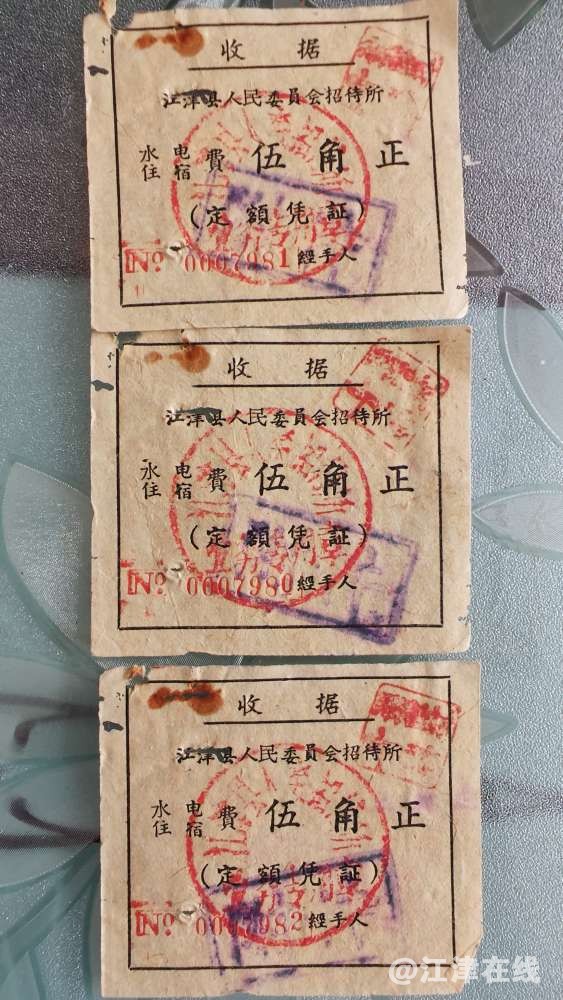 收 据
江津县人民委員会招待所
水电
住宿 費 伍角正
(定額凭証)
No 0007981 經手人
收 据
江津县人民委員会招待所
水电
住宿 費 伍角正
(定額凭証)
No 0007980 經手人
收 据
江津县人民委員会招待所
水电
住宿 費 伍角正
(定額凭証)
No 0007982 經手人
@江津在线